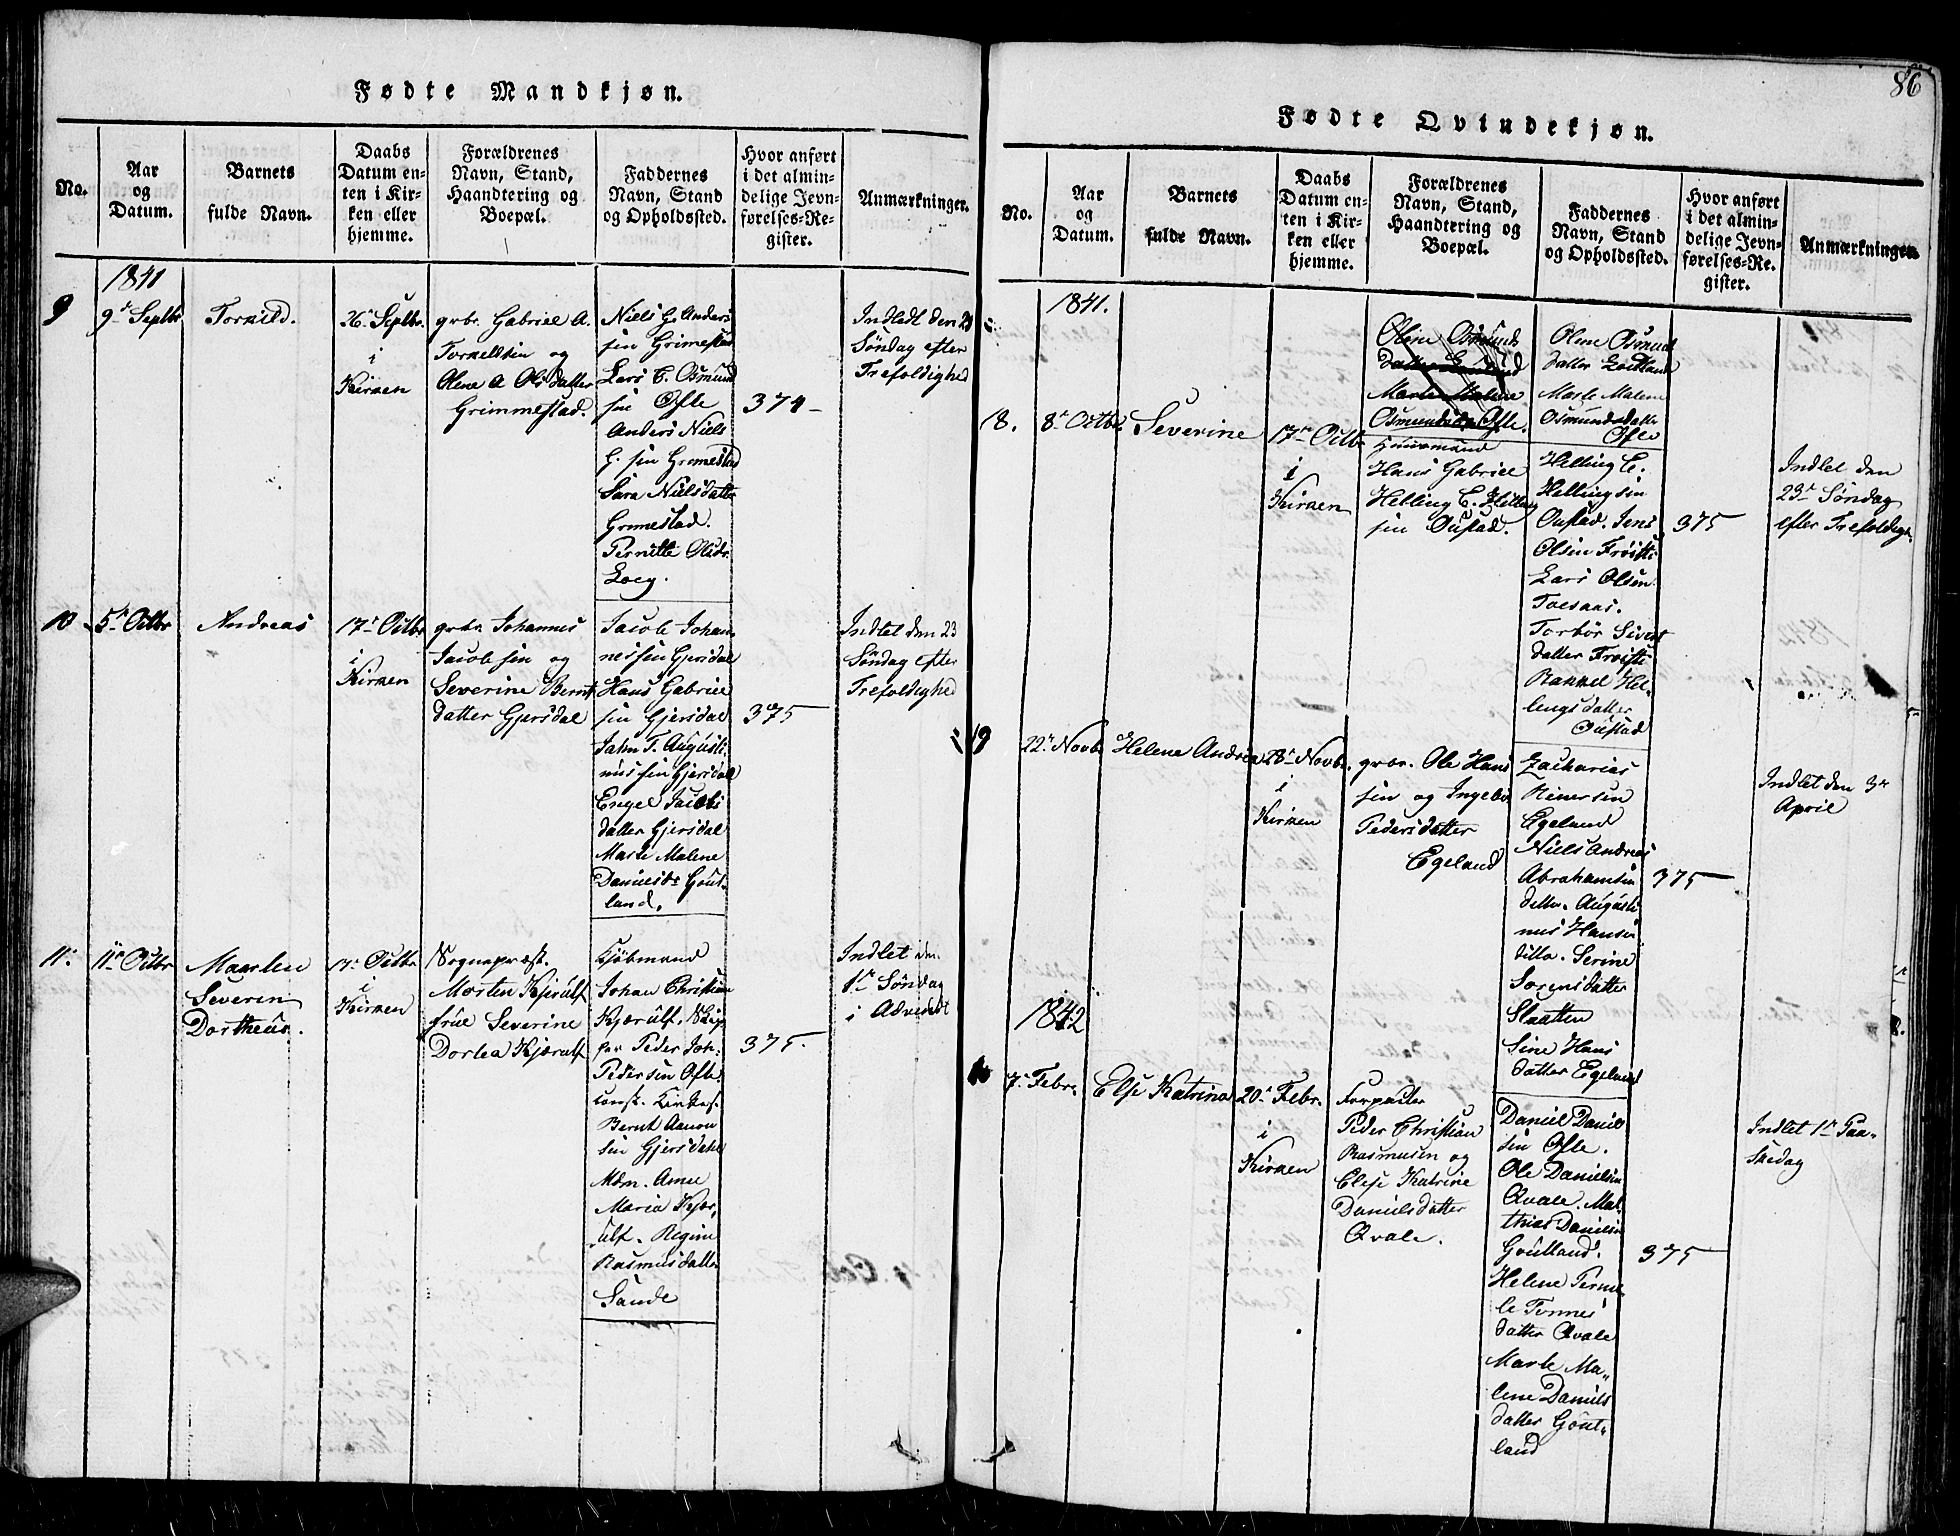 Fødte Mandkjøn.
No.
Aar
og
Datum.
Barnets
fulde Navn.
Daabs
Datum en-
ten i Kir-
ken eller
hjemme.
Forældrenes
Navn, Stand,
Haandtering og
Boepæl.
Faddernes
Navn, Stand
og Opholdssted.
Hvor anført
i det almin-
delige Jevn-
førelses-Re-
gister.
Anmærkninger.
1841
9
9de Septbr
Torkild.
26de Septbr.
i
Kirken
gbr. Gabriel A.
Torkelsen og
Olene A Olsdatter
Grimmestad.
Niels G. Anders
sen Grimestad
Lars C. Osmund
sen Ofte
Anders Niels
G. sen Grimestad
Sara Nielsdatter
Grimestad.
Pernille Olsdr.
Loeg.
374
Indledt den
Søndag efter
Trefoldighed
10
5te Octbr
Andreas
17de Octbr
i
Kirken
gbr. Johannes
Jacobsen og
Severine Bernt
datter Gjersdal
Jacob Johan
nessen Gjersdal
Hans Gabriel
sen Gjersdal
Jahn T. Augusti
nussen Gjersdal
Engel Jacobs
datter Gjersdal
Marte Malene
Danielsdr Gout-
land.
375
Indlet den 23
Søndag efter
Trefoldighed
11.
11te Octbr
Maarten
Severin
Dortheus.
17de Octbr
i
Kirken
Sognepræst.
Morten Kjerulf
frue Severine
Dortea Kjærulf
Kjøbmand
Johan Christian
Kjærulf. Skip
per Peder Joh.
Pedersen Ofte
const. Kirkes.
Bernt Aanon
sen Gjersdahl
Mdm. Anne
Maria Kjær-
ulf. Regine
Rasmusdatter
Sande
375.
Indlet den
1ste Søndag
i Advendt
86
Fødte Qvindekjøn.
No.
Aar
og
Datum.
Barnets
fulde Navn.
Daabs
Datum en-
ten i Kir-
ken eller
hjemme.
Forældrenes
Navn, Stand,
Haandtering og
Boepæl.
Faddernes
Navn, Stand
og Opholdssted.
Hvor anført
i det almin-
delige Jevn-
førelses-Re-
gister.
Anmærkninger.
1841.
18.
8de Octbr
Severine
17de Octbr
i
Kirken
Olene Osmunds
datter Goutland
Marte Malene
Osmundsdr Ofte.
Huusmand
Hans Gabriel
Helling C. Helling
sen Oustad.
Olene Osmund
datter Goutland
Marte Malene
Osmundsdatter
Ofte
Helling C.
Hellingsen
Oustad. Jens
Olsen Frøiste
Lars Olsen
Toesaas.
Torbør Sivert
datter Frøiste
Rakkel Hel-
lengsdatter
Oustad
375
Indlet den
23de Søndag
efter Trefoldigh.
19
22de Novbr
Helene Andrea
28de Novbr.
i
Kirken
gbr. Ole Hans
sen og Ingebor
Pedersdatter
Egeland
Zacharias
Reinersen
Egeland
Niels Andreas
Abrahamsen
ditto. Augusti
nus Hansen
ditto. Serine
Sorensdatter
Slaatten
Sine Hans
datter Egeland
375
Indlet den 3de
April
1842
7de Febr.
Else Katrina
20de Febr.
i
Kirken
Forpagter
Peder Christian
Rasmusen og
Else Katrine
Danielsdatter
Qvale.
Daniel Daniel
sen Ofte.
Ole Danielsen
Qvale. Mat-
thias Danielsen
Goutland.
Helene Perne-
le Tønnes
datter Qvale
Marte Ma-
lene Daniels
datter Gout-
land
375
Indlet 1ste Paa-
skedag